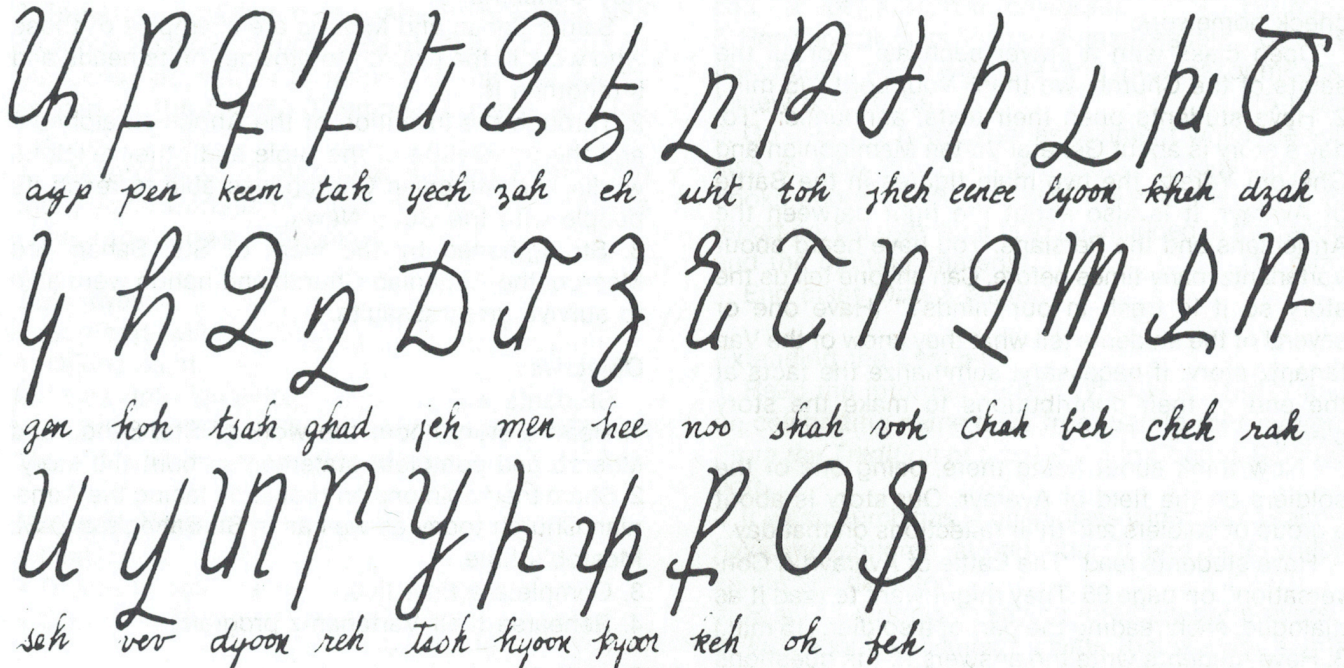 Ա Բ Գ Դ Ե Զ Է Ը Թ Ժ Ի Լ Խ Ծ
ayp pen keem tah yech zah eh uht toh jheh eenee lyoon khah dzah
Կ Հ Ձ Ղ Ճ Մ Յ Ն Շ Ո Չ Պ Ջ Ռ
gen hoh tsah ghad jeh men hee noo shah voh chah beh cheh rah
Ս Վ Տ Ր Ց Ւ Փ Ք Օ Ֆ
seh vev dyoon reh tsoh hyoon pyoor keh oh feh